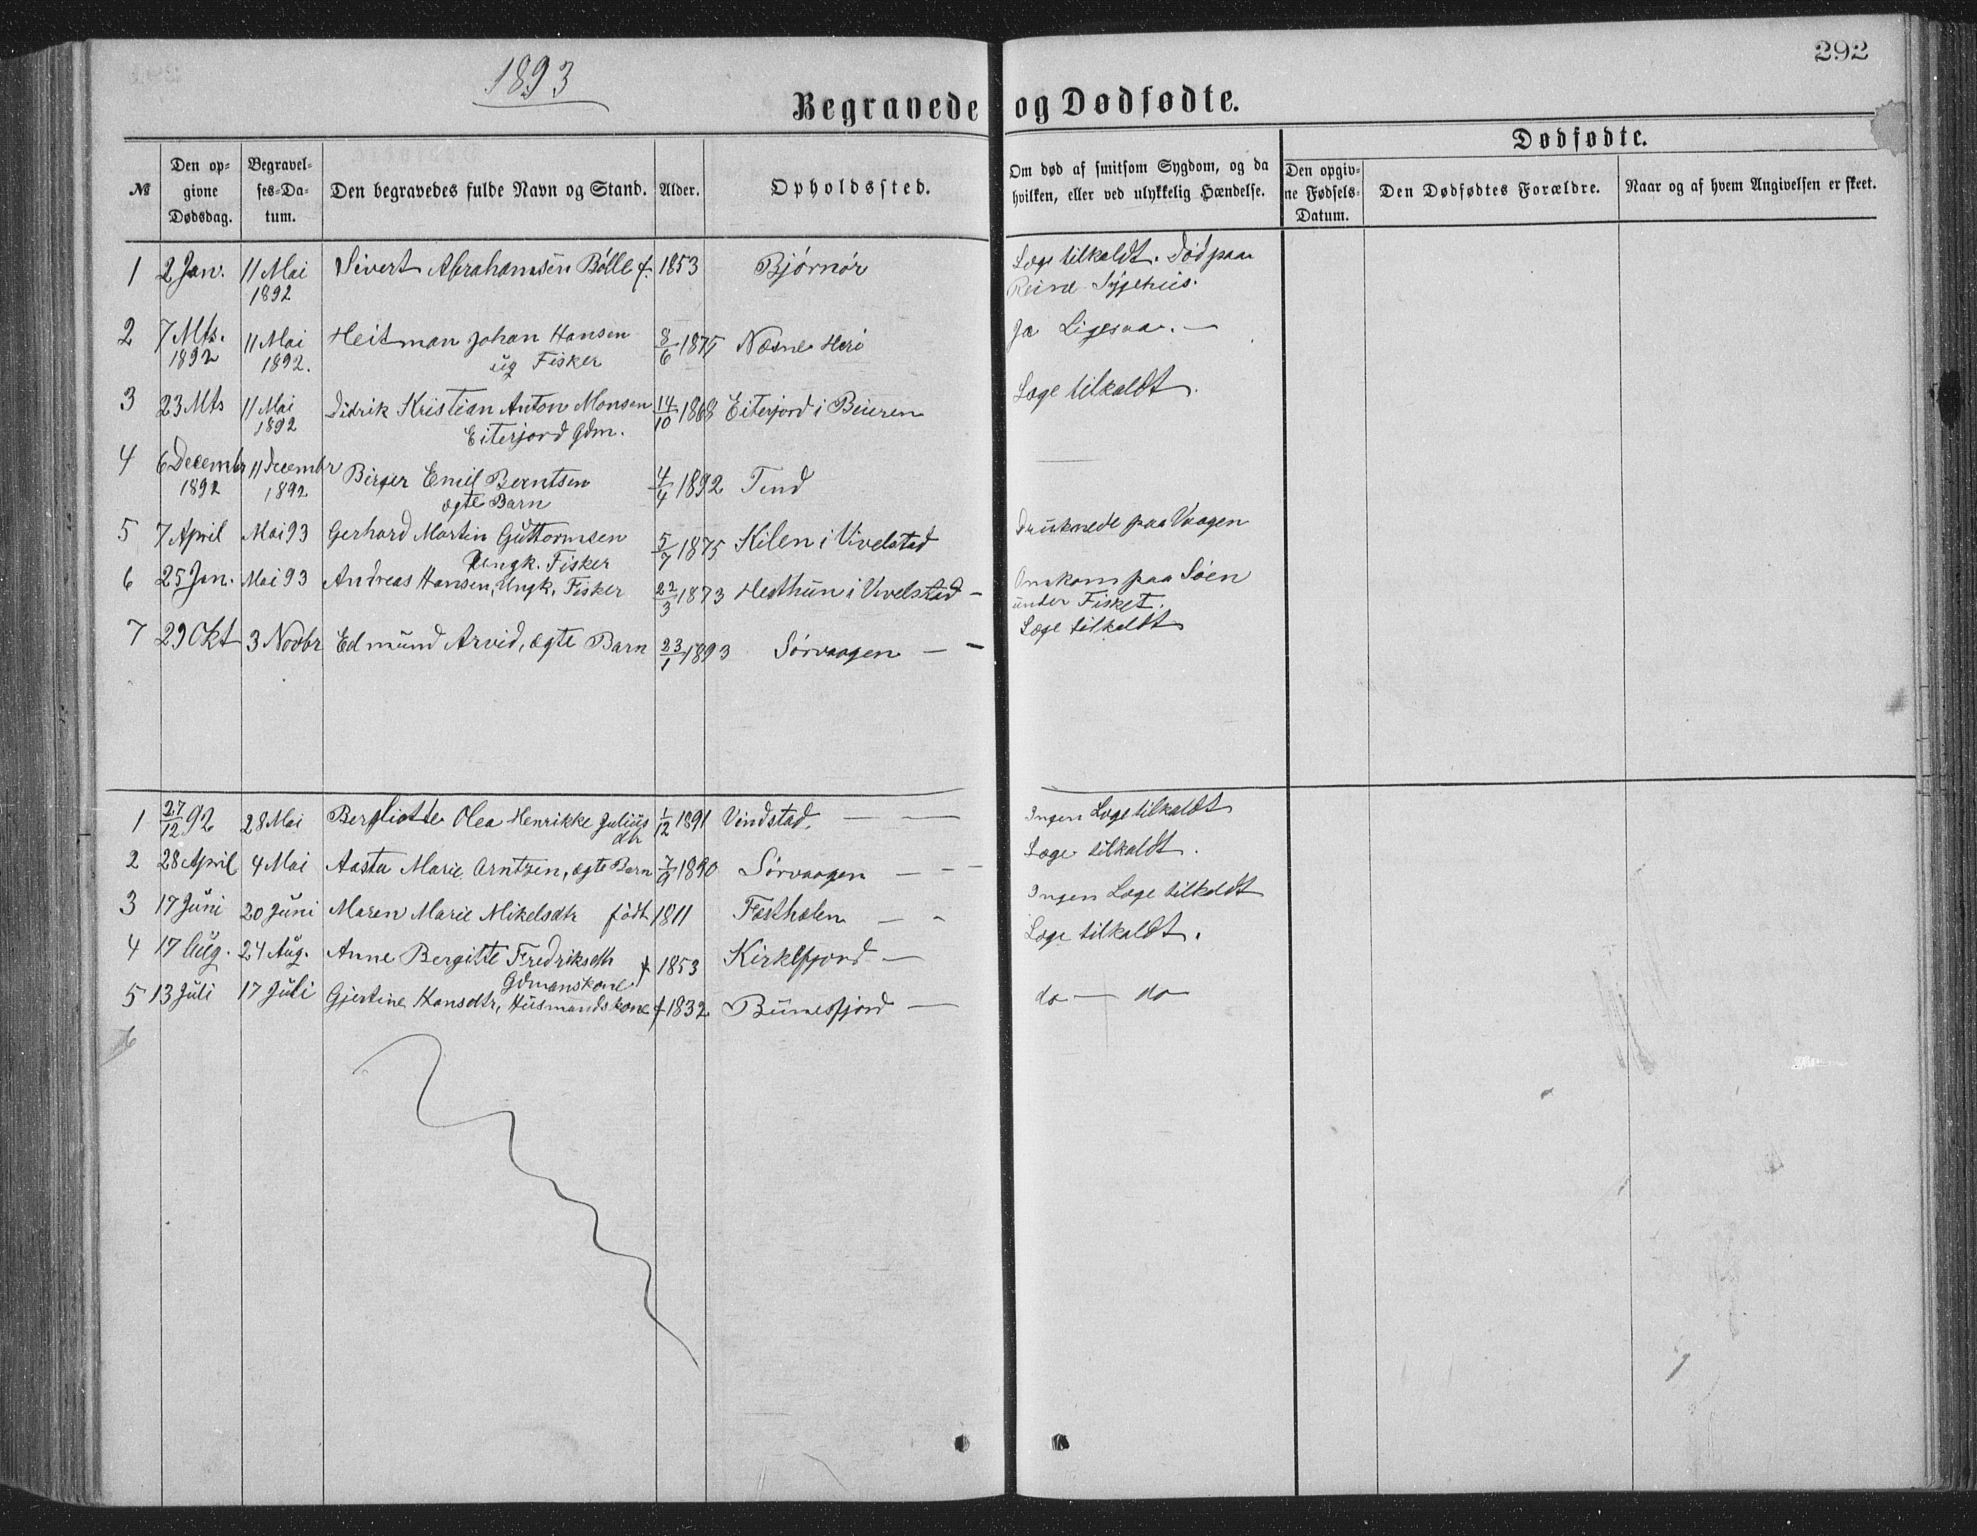 292
1893
Begravede og Dødfødte.
Dødfødte.
№
Den op=
givne
Dødsdag.
Begravel=
ses=Da=
tum.
Den begravedes fulde Navn og Stand.
Alder.
Opholdssted.
Om død af smitsom Sygdom, og da
hvilken, eller ved ulykkelig Hændelse.
Den opgiv=
ne Fødsels=
Datum.
Den Dødfødtes Forældre.
Naar og af hvem Angivelsen er skeet.
1 2 Jan. 11 Mai Sivert Abrahamsen Bølle f. 1853 Bjørnør Læge tilkaldt. Død paa
1892 Reine Sygehus.
2 7 Mts. 11 Mai Heitman Johan Hansen 8/6 1875 Næsne Herø Ja Ligesaa. —
1892 1892. ug Fisker
3 23 Mts 11 Mai Didrik Kristian Anton Monsen 14/10 1868 Eiterjord i Beieren Læge tilkaldt.
1892 Eiterjord Gdm.
4 6 Decembr 11 Decembr Birger Emil Berntsen 4/4 1892 Tind
1892 1892 ægte Barn
5 7 April Mai 93 Gerhard Martin Guttormsen 5/7 1875 Kilen i Vivelstad Druknede paa Vaagen
Ungk. Fisker
6 25 Jan. Mai 93 Andreas Hansen, Ungk. Fisker 22/3 1873 Hesthun i Vivelstad — Omkom paa Søen
under Fisket.
7 29 Okt 3 Novbr Edmund Arvid, ægte Barn 23/1 1893 Sørvaagen — — Læge tilkaldt
1 27/12 92 28 Mai Bergliotte Olea Henrikke Julius 1/12 1891 Vindstad. — — Ingen Læge tilkaldt
dtr
2 28 April 4 Mai Aasta Marie Arntzen, ægte Barn 7/9 1890 Sørvaagen — — Læge tilkaldt.
3 17 Juni 20 Juni Maren Marie Mikelsdtr født 1811 Festhælen — - Ingen Læge tilkaldt
4 17 Aug. 24 Aug. Anne Bergitte Fredriksdtr f 1853 Kirkefjord — Læge tilkaldt.
Gdmanskone
5 13 Juli 17 Juli Gjertine Hansdtr, Husmandskone f 1832 Bunesfjord — do — do
6